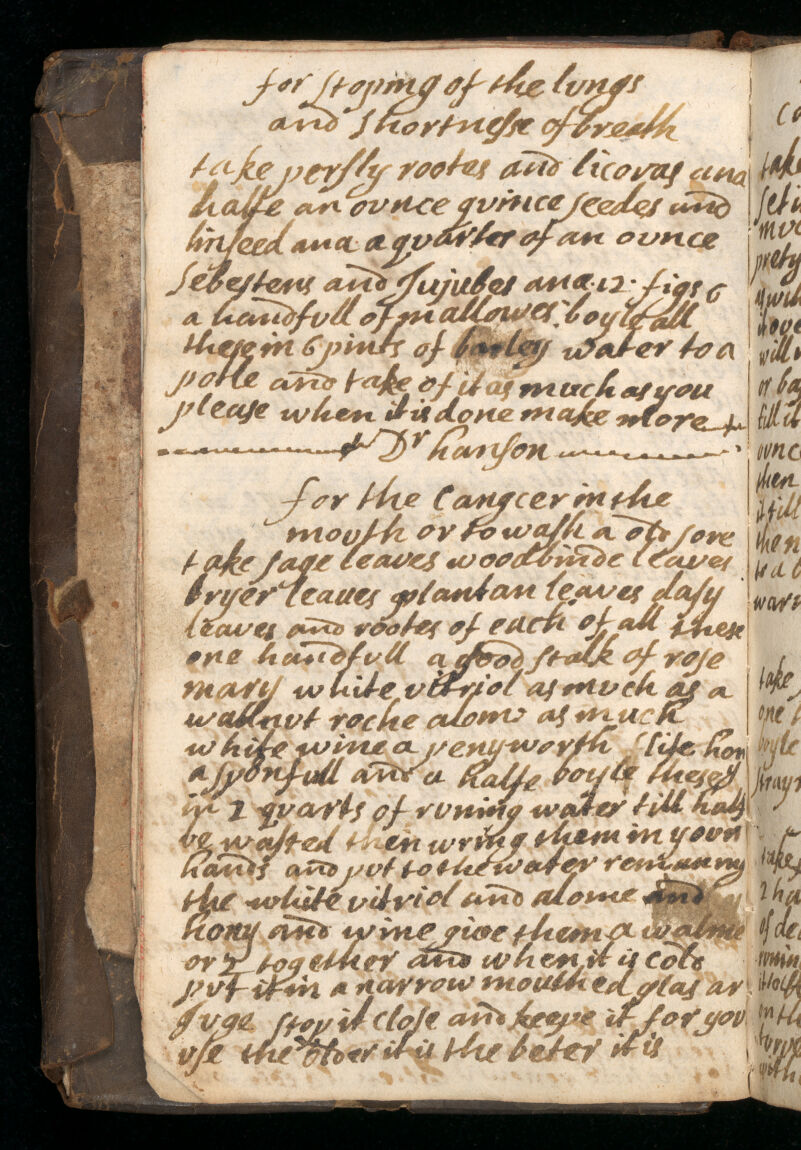 for stoping of the lungs
and shortnesse of breath
take persly rootes and licoras ana
halfe an ounce quince seedes and
linseed ana a quarter of an ounce
Sebestens and Jujubes ana 12 figs 6
a handfull of mallowes boyle all
these in 6 pints of barley water to a
potle and take of it as much as you
please when it is done make more
Dr hanson
for the Cangcer in the
mouth or to wash a old sore
take sage leaves woodbinde leaves
bryer leaues plantan leaves dasy
leaves and rootes of each of all these
one handfull a good stalk of rose
mary white vitriol as much as a
wallnut roche alome as much
white wine a penyworth life hony
a sponfull and a halfe boyle these
in 2 quarts of runing water till halfe
be wasted then wring them in your
hands and put to the water remaining
the white vitriol and alome and
hony and wine give them a walme
or 2 together and when it is cold
put it in a narrow mouthed glas or
Juge stop it close and keepe it for you
use the older it is the beter it is
ca
take
set
muc
prety
will
or ba
till it
ounc
then
it till
then
to a b
warm
take
one h
boyle
strayn
take
2 ha
of
runin
on th
with